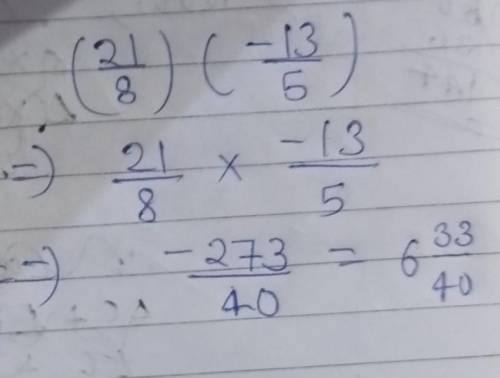 (21/8) (-13/5)
=> 21/8 × -13/5
=> -273/40 = 6 33/40